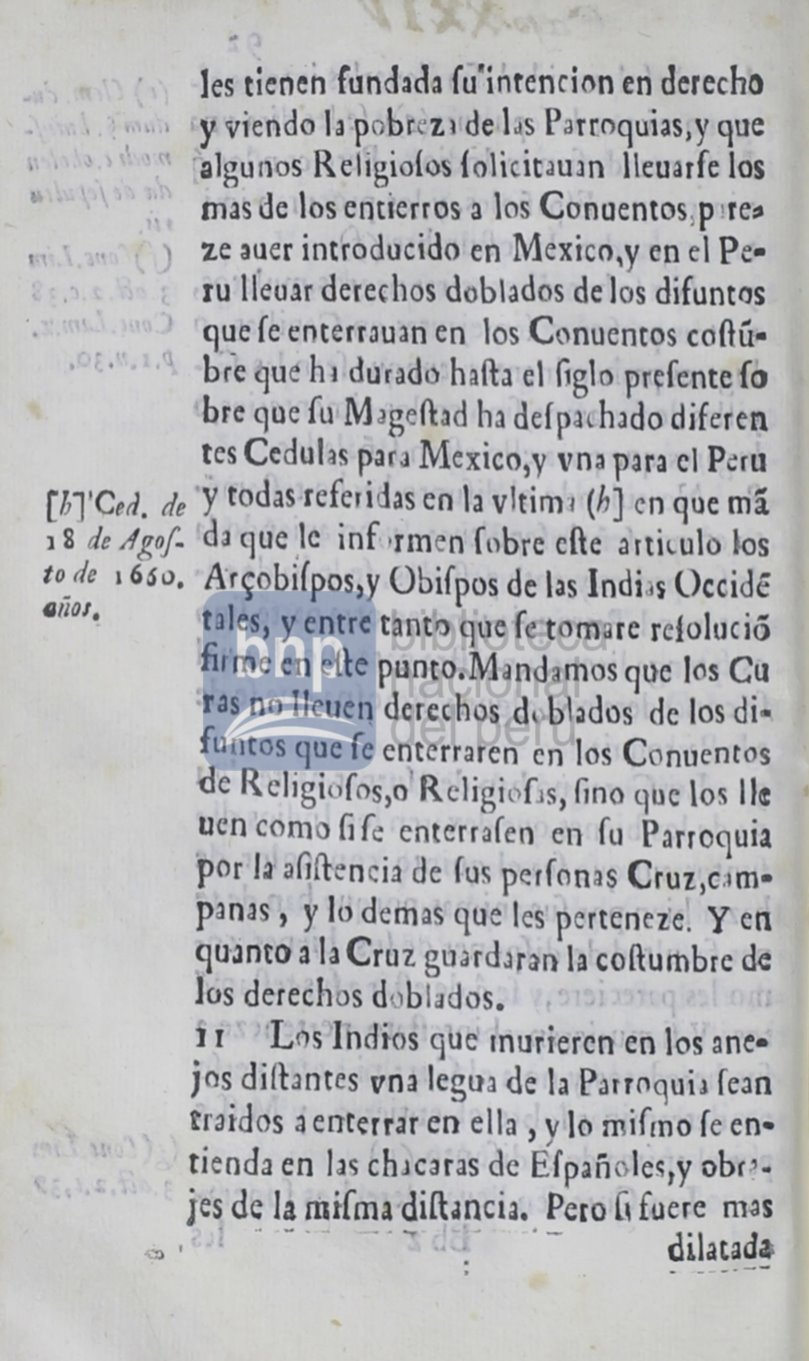 les tienen fundada ſu intencion en derecho
y viendo la pobreza de las Parroquias, y que
algunos Religioſos ſolicitauan lleuarſe los
mas de los entierros a los Conuentos, pare-
ze auer introducido en Mexico, y en el Pe-
ru lleuar derechos doblados de los difuntos
que ſe enterrauan en los Conuentos coſtũ-
bre que ha durado haſta el ſiglo preſente ſo
bre que ſu Mageſtad ha deſpachado diferen
tes Cedulas para Mexico, y vna para el Peru
y todas referidas en la vltima (h] en que mã
da que le informen ſobre eſte articulo los
Arçobiſpos, y Obiſpos de las Indias Occidẽ
tales, y entre tanto que ſe tomare reſolució
firme en eſte punto. Mandamos que los Cu
ras no lleuen derechos doblados de los di-
funtos que ſe enterraren en los Conuentos
de Religioſos, o Religioſas, ſino que los lle
uen como ſi ſe enterraſen en ſu Parroquia
por la aſiſtencia de ſus perſonas Cruz, cam-
panas, y lo demas que les perteneze. Y en
quanto a la Cruz guardaran la coſtumbre de
los derechos doblados.
11 Los Indios que murieren en los ane-
jos diſtantes vna legua de la Parroquia ſean
traidos a enterrar en ella, y lo miſmo ſe en-
tienda en las chacaras de Eſpañoles, y obra-
jes de la miſma diſtancia. Pero ſi fuere mas
dilatada
[h] Ced. de
18 de Agoſ-
to de 1660.
años.
bnp
biblioteca
nacional
del perú